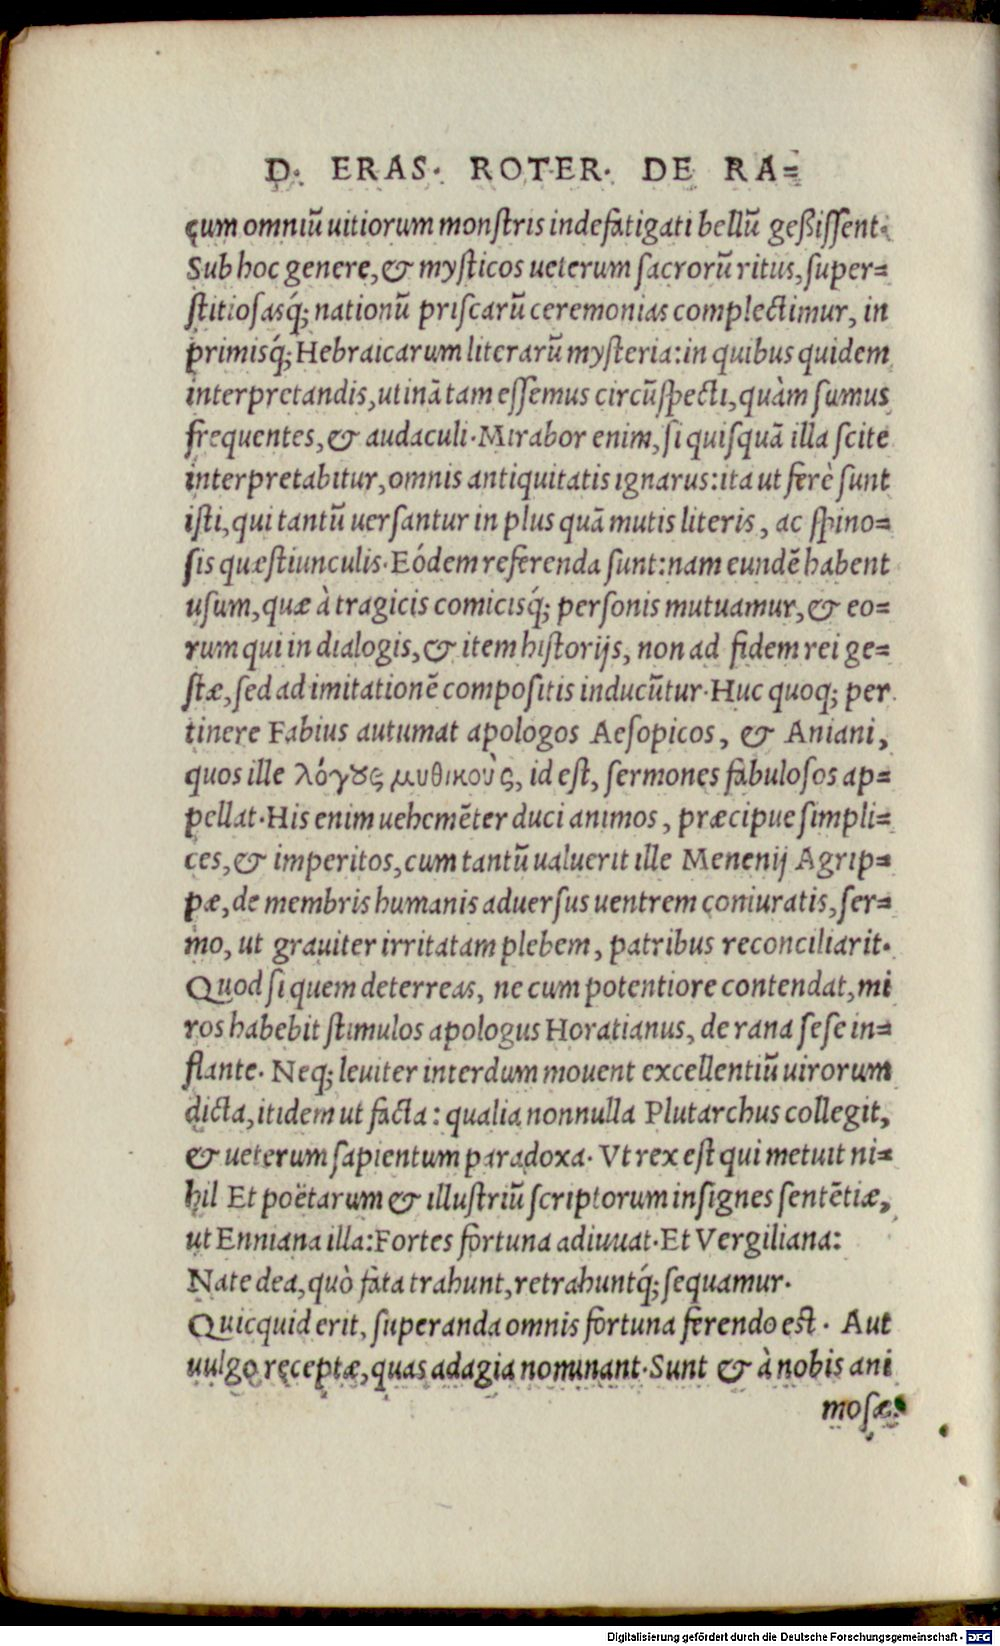 D. ERAS. ROTER. DE RA=
cum omniũ uitiorum monſtris indefatigati bellũ geßiſſent.
Sub hoc genere, & myſticos ueterum ſacrorũ ritus, ſuper=
ſtitioſasq́; nationũ priſcarũ ceremonias complectimur, in
primisq́; Hebraicarum literarũ myſteria: in quibus quidem
interpretandis, utinã tam eſſemus circũſpecti, quàm ſumus
frequentes, & audaculi. Mirabor enim, ſi quiſquã illa ſcite
interpretabitur, omnis antiquitatis ignarus: ita ut ferè ſunt
iſti, qui tantũ uerſantur in plus quã mutis literis, ac ſpino=
ſis quæſtiunculis. Eódem referenda ſunt: nam eundẽ habent
uſum, quæ à tragicis comicisq́; perſonis mutuamur, & eo=
rum qui in dialogis, & item hiſtorijs, non ad fidem rei ge=
ſtæ, ſed ad imitationẽ compoſitis inducũtur. Huc quoq; per
tinere Fabius autumat apologos Aeſopicos, & Aniani,
quos ille λόγȣς μυθικοὺς, id eſt, ſermones fabuloſos ap=
pellat. His enim uehemẽter duci animos, præcipue ſimpli=
ces, & imperitos, cum tantũ ualuerit ille Menenij Agrip=
pæ, de membris humanis aduerſus uentrem coniuratis, ſer=
mo, ut grauiter irritatam plebem, patribus reconciliarit.
Quod ſi quem deterreas, ne cum potentiore contendat, mi
ros habebit ſtimulos apologus Horatianus, de rana ſeſe in=
flante. Neq; leuiter interdum mouent excellentiũ uirorum
dicta, itidem ut facta: qualia nonnulla Plutarchus collegit,
& ueterum ſapientum paradoxa. Vt rex eſt qui metuit ni=
hil Et poëtarum & illuſtriũ ſcriptorum inſignes ſentẽtiæ,
ut Enniana illa: Fortes fortuna adiuuat. Et Vergiliana:
Nate dea, quò fata trahunt, retrahuntq́; ſequamur.
Quicquid erit, ſuperanda omnis fortuna ferendo eſt. Aut
uulgo receptæ, quas adagia nominant. Sunt & à nobis ani
moſæ
Digitalisierung gefördert durch die Deutsche Forschungsgemeinschaft - DFG